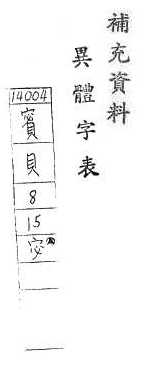 補充資料
異體字表
14004
賓
貝
8
15